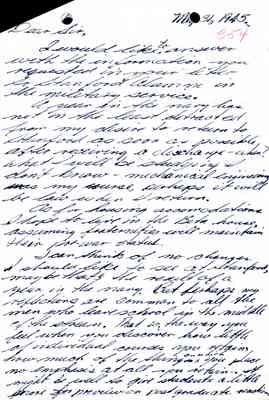 May 31, 1945.
554
Dear Sir,
I would like to answer
with the information you
requested in your letter
to Stanford Alumni in
the military service.
A year in the navy has
not in the least detracted
from my desire to return to
Stanford as soon as possible
after receiving a discharge - when?
What I will be studying I
don't know - mechanical engineering
was my course, perhaps it will
be law when I return.
As for housing accomodations
I hope to live in the Beta house,
assuming fraternities will maintain
their for war status.
I can think of no changes
I should like to see at Stanford,
maybe that's the result of a
year in the navy. But perhaps my
reflections are common to all the
men who leave school in the middle
of the stream. That is, the way you
feel when you discover how little
of individual courses you retain,
how much of the things you place
no emphasis at all you retain. It
might be well to give students a little
more for preview or post graduate work